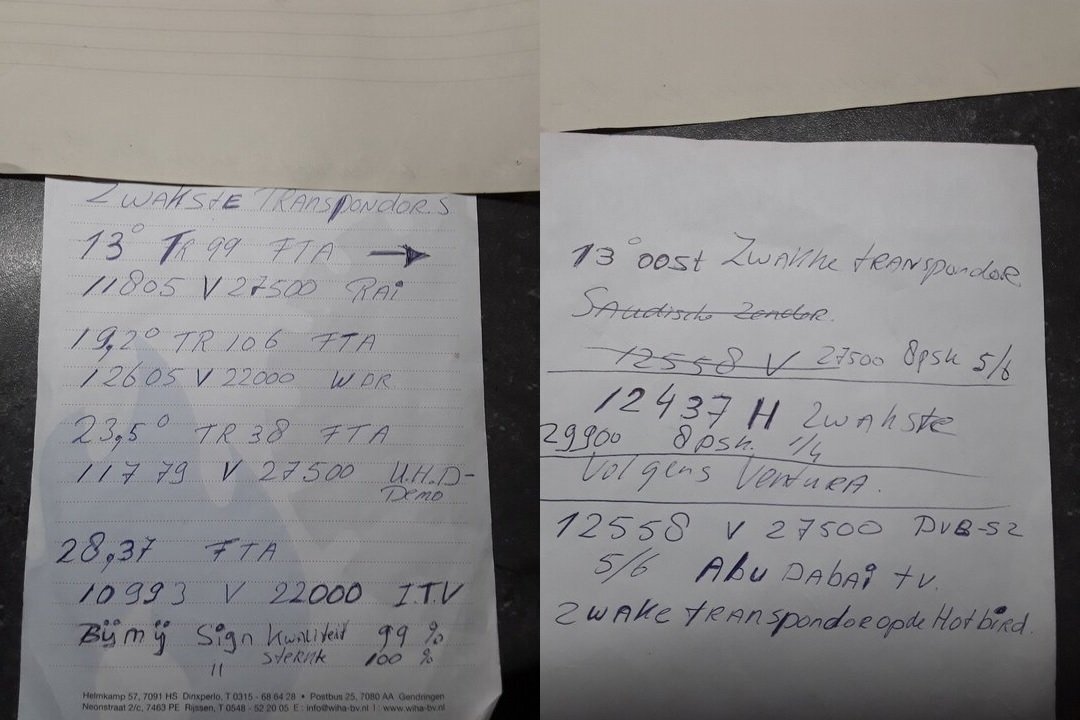 ZWAKSTE TRANSPONDORS
13° TR 99 FTA →
11805 V 27500 RAi
19,2° TR 106 FTA
12605 V 22000 WDR
23,5° TR 38 FTA
11779 V 27500 U.H.D-
Demo
28,37 FTA
10993 V 22000 I.T.V
Bij mij Sign kwaliteit 99 %
" sterkte 100 %
Helmkamp 57, 7091 HS Dinxperlo, T 0315 - 68 64 28 • Postbus 25, 7080 AA Gendringen
Neonstraat 2/c, 7463 PE Rijssen, T 0548 - 52 20 05 E : info@wiha-bv.nl I : www.wiha-bv.nl
13° oost Zwakke transpondor
Saudische Zender.
12558 V 27500 8psk 5/6
12437 H Zwakste
29900 8psk. 1/4
Volgens Ventura.
12558 V 27500 DVB-S2
5/6 Abu Dabai tv.
Zwake transpondoe op de Hotbird.